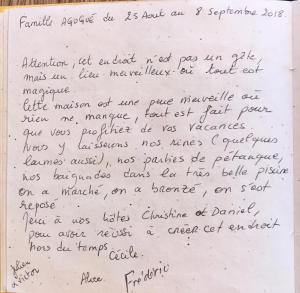 Famille AGOGUÉ du 25 Aout au 8 Septembre 2018.
Attention, cet endroit n'est pas un gîte,
mais un lieu merveilleux où tout est
magique.
Cette maison est une pure merveille où
rien ne manque, tout est fait pour
que vous profitiez de vos vacances.
Nous y laissons nos rires (quelques
larmes aussi), nos parties de pétanque,
nos baignades dans la très belle piscine
on a marché, on a bronzé, on s'est
reposé.
Merci à nos hôtes Christine et Daniel,
pour avoir réussi à créer cet endroit
hors du temps.
Cécile.
Julien
Victor
Alice
Frédéric